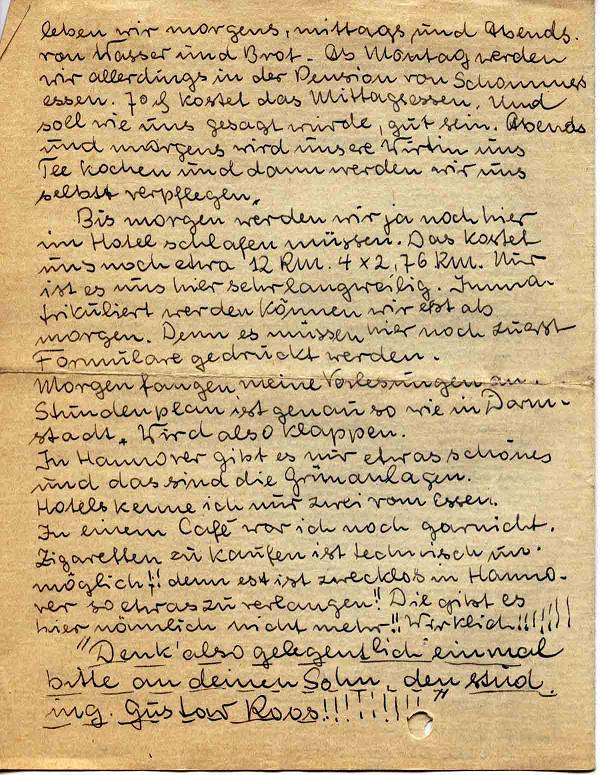 leben wir morgens, mittags und Abends.
von Wasser und Brot. Ab Montag werden
wir allerdings in der Pension von Schommers
essen. 70 ₰ kostet das Mittagsessen. Und
soll wie uns gesagt wurde, gut sein. Abends
und morgens wird unsere Wirtin uns
Tee kochen und dann werden wir uns
selbst verpflegen.
Bis morgen werden wir ja noch hier
im Hotel schlafen müssen. Das kostet
uns noch etwa 12 RM. 4 x 2,76 RM. Nur
ist es uns hier sehr langweilig. Imma-
trikuliert werden können wir erst ab
morgen. Denn es müssen hier noch zuerst
Formulare gedruckt werden.
Morgen fangen meine Vorlesungen an.
Stundenplan ist genau so wie in Darm-
stadt. Wird also klappen.
In Hannover gibt es nur etwas schönes
und das sind die Grünanlagen.
Hotels kenne ich nur zwei vom Essen.
In einem Café war ich noch garnicht.
Zigaretten zu kaufen ist technisch un-
möglich!! denn es ist zwecklos in Hanno-
ver so etwas zu verlangen!! Die gibt es
hier nämlich nicht mehr!! Wirklich!!!!!!!!
"Denk' also gelegentlich einmal
bitte an deinen Sohn, den stud.
ing. Gustav Roos!!!!!!!!"